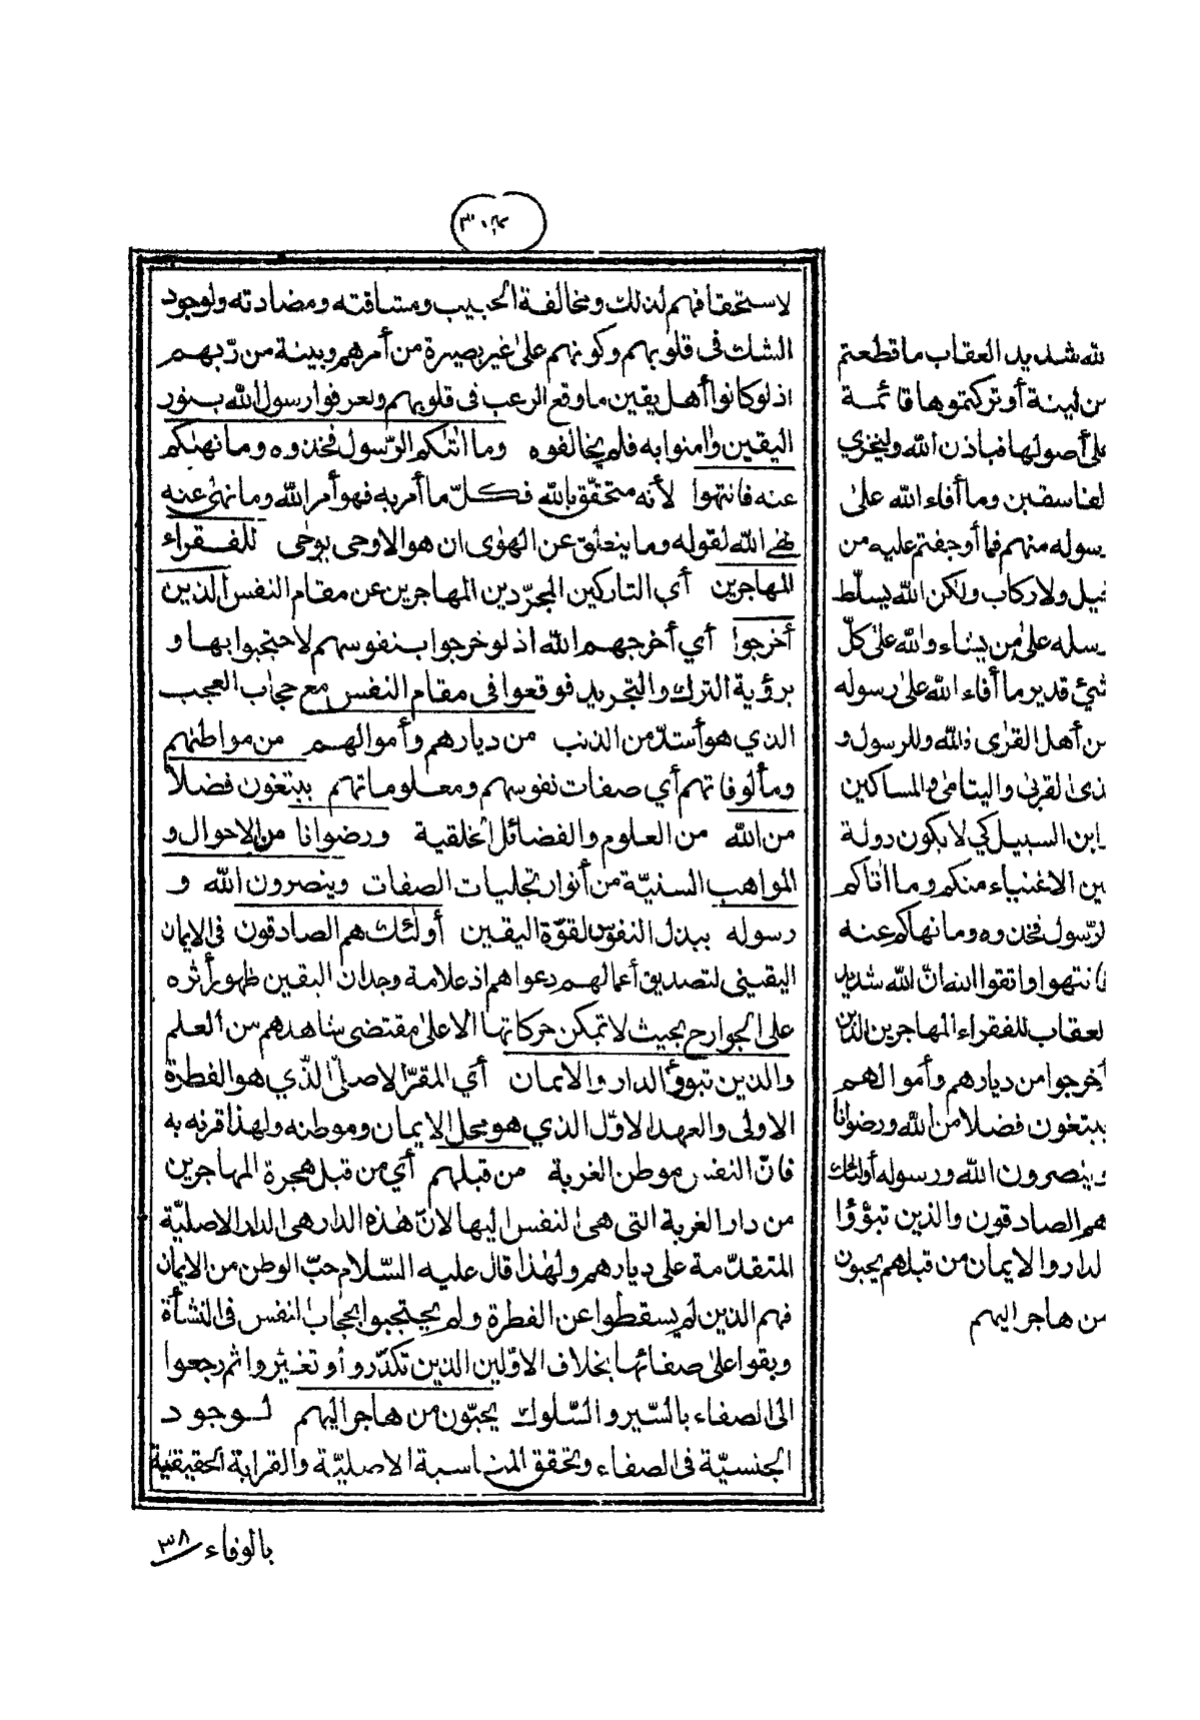 لاستحقاقهم لذلك ومخالفة الحبيب ومشاقته ومضادته ولوجود
الشك فى قلوبهم وكونهم على غير بصيرة من أمرهم وبينة من ربّهم
اذ لو كانوا أهل يقين ما وقع الرعب فى قلوبهم ولعرفوا رسول الله بنور
اليقين وآمنوا به فلم يخالفوه وما اتٰىكم الرّسول فخذوه وما نهٰىكم
عنه فانتهوا لأنه متحقّق بالله فكلّ ما أمر به فهو أمر الله وما نهىٰ عنه
نهي الله لقوله وما ينطق عن الهوٰى ان هو الا وحى يوحٰى للفقراء
المهاجرين أي التاركين المجرّدين المهاجرين عن مقام النفس الذين
أخرجوا أي أخرجهم الله اذ لو خرجوا بنفوسهم لاحتجبوا بها و
برؤية الترك والتجريد فوقعوا فى مقام النفس مع حجاب العجب
الذي هو أشدّ من الذنب من ديارهم وأموالهم من مواطنهم
ومألوفاتهم أي صفات نفوسهم ومعلوماتهم يبتغون فضلاً
من الله من العلوم والفضائل الخلقية ورضوانا من الاحوال و
المواهب السنيّة من أنوار تجليات الصفات وينصرون الله و
رسوله ببذل النفوس لقوّة اليقين أولٰئك هم الصادقون فى الايمان
اليقينى لتصديق أعمالهم دعواهم اذ علامة وجدان اليقين ظهور أثره
على الجوارح بحيث لا تمكن حركاتها الا على مقتضى شاهدهم من العلم
والذين تبوؤ الدار والايمان أي المقرّ الاصلىّ الذّي هو الفطرة
الاولى والعهد الاوّل الذي هو محل الايمان وموطنه ولهذا قرنه به
فانّ النفس موطن الغربة من قبلهم أي من قبل هجرة المهاجرين
من دار الغربة التى هى النفس اليها لانّ هٰذه الدار هى الدار الاصليّة
المتقدّمة على ديارهم ولهٰذا قال عليه السّلام حبّ الوطن من الايمان
فهم الذين لم يسقطوا عن الفطرة ولم يحتجبوا بحجاب النفس فى النشأة
وبقوا على صفائها بخلاف الاوّلين الذين تكدّروا وتغيّروا ثم رجعوا
الى الصفاء بالسّير والسّلوك يحبّون من هاجر اليهم لوجود
الجنسيّة فى الصفاء وتحقق المناسبة الاصليّة والقرابة الحقيقية
بالوفاء ٣٨
لله شديد العقاب ما قطعتم
من لينة أو تركتموها قائمة
على أصولها فباذن الله وليخزي
لفاسقين وما أفاء الله علىٰ
رسوله منهم فما أوجفتم عليه من
خيل ولا ركاب ولٰكن الله يسلّط
رسله علىٰ من يشاء والله علىٰ كلّ
شيئ قدير ما أفاء الله علىٰ رسوله
من أهل القرٰى فلله وللرسول و
لذى القربىٰ واليتامىٰ والمساكين
وابن السبيل كي لا يكون دولة
بين الاغنياء منكم وما اٰتاكم
لرّسول فخذوه وما نهاكم عنه
فانتهوا واتقوا الله انّ الله شديد
لعقاب للفقراء المهاجرين الذين
أخرجوا من ديارهم وأموالهم
يبتغون فضلا من الله ورضوانا
وينصرون الله ورسوله أولئك
هم الصادقون والذين تبوّؤا
لدار والايمان من قبلهم يحبون
من هاجر اليهم